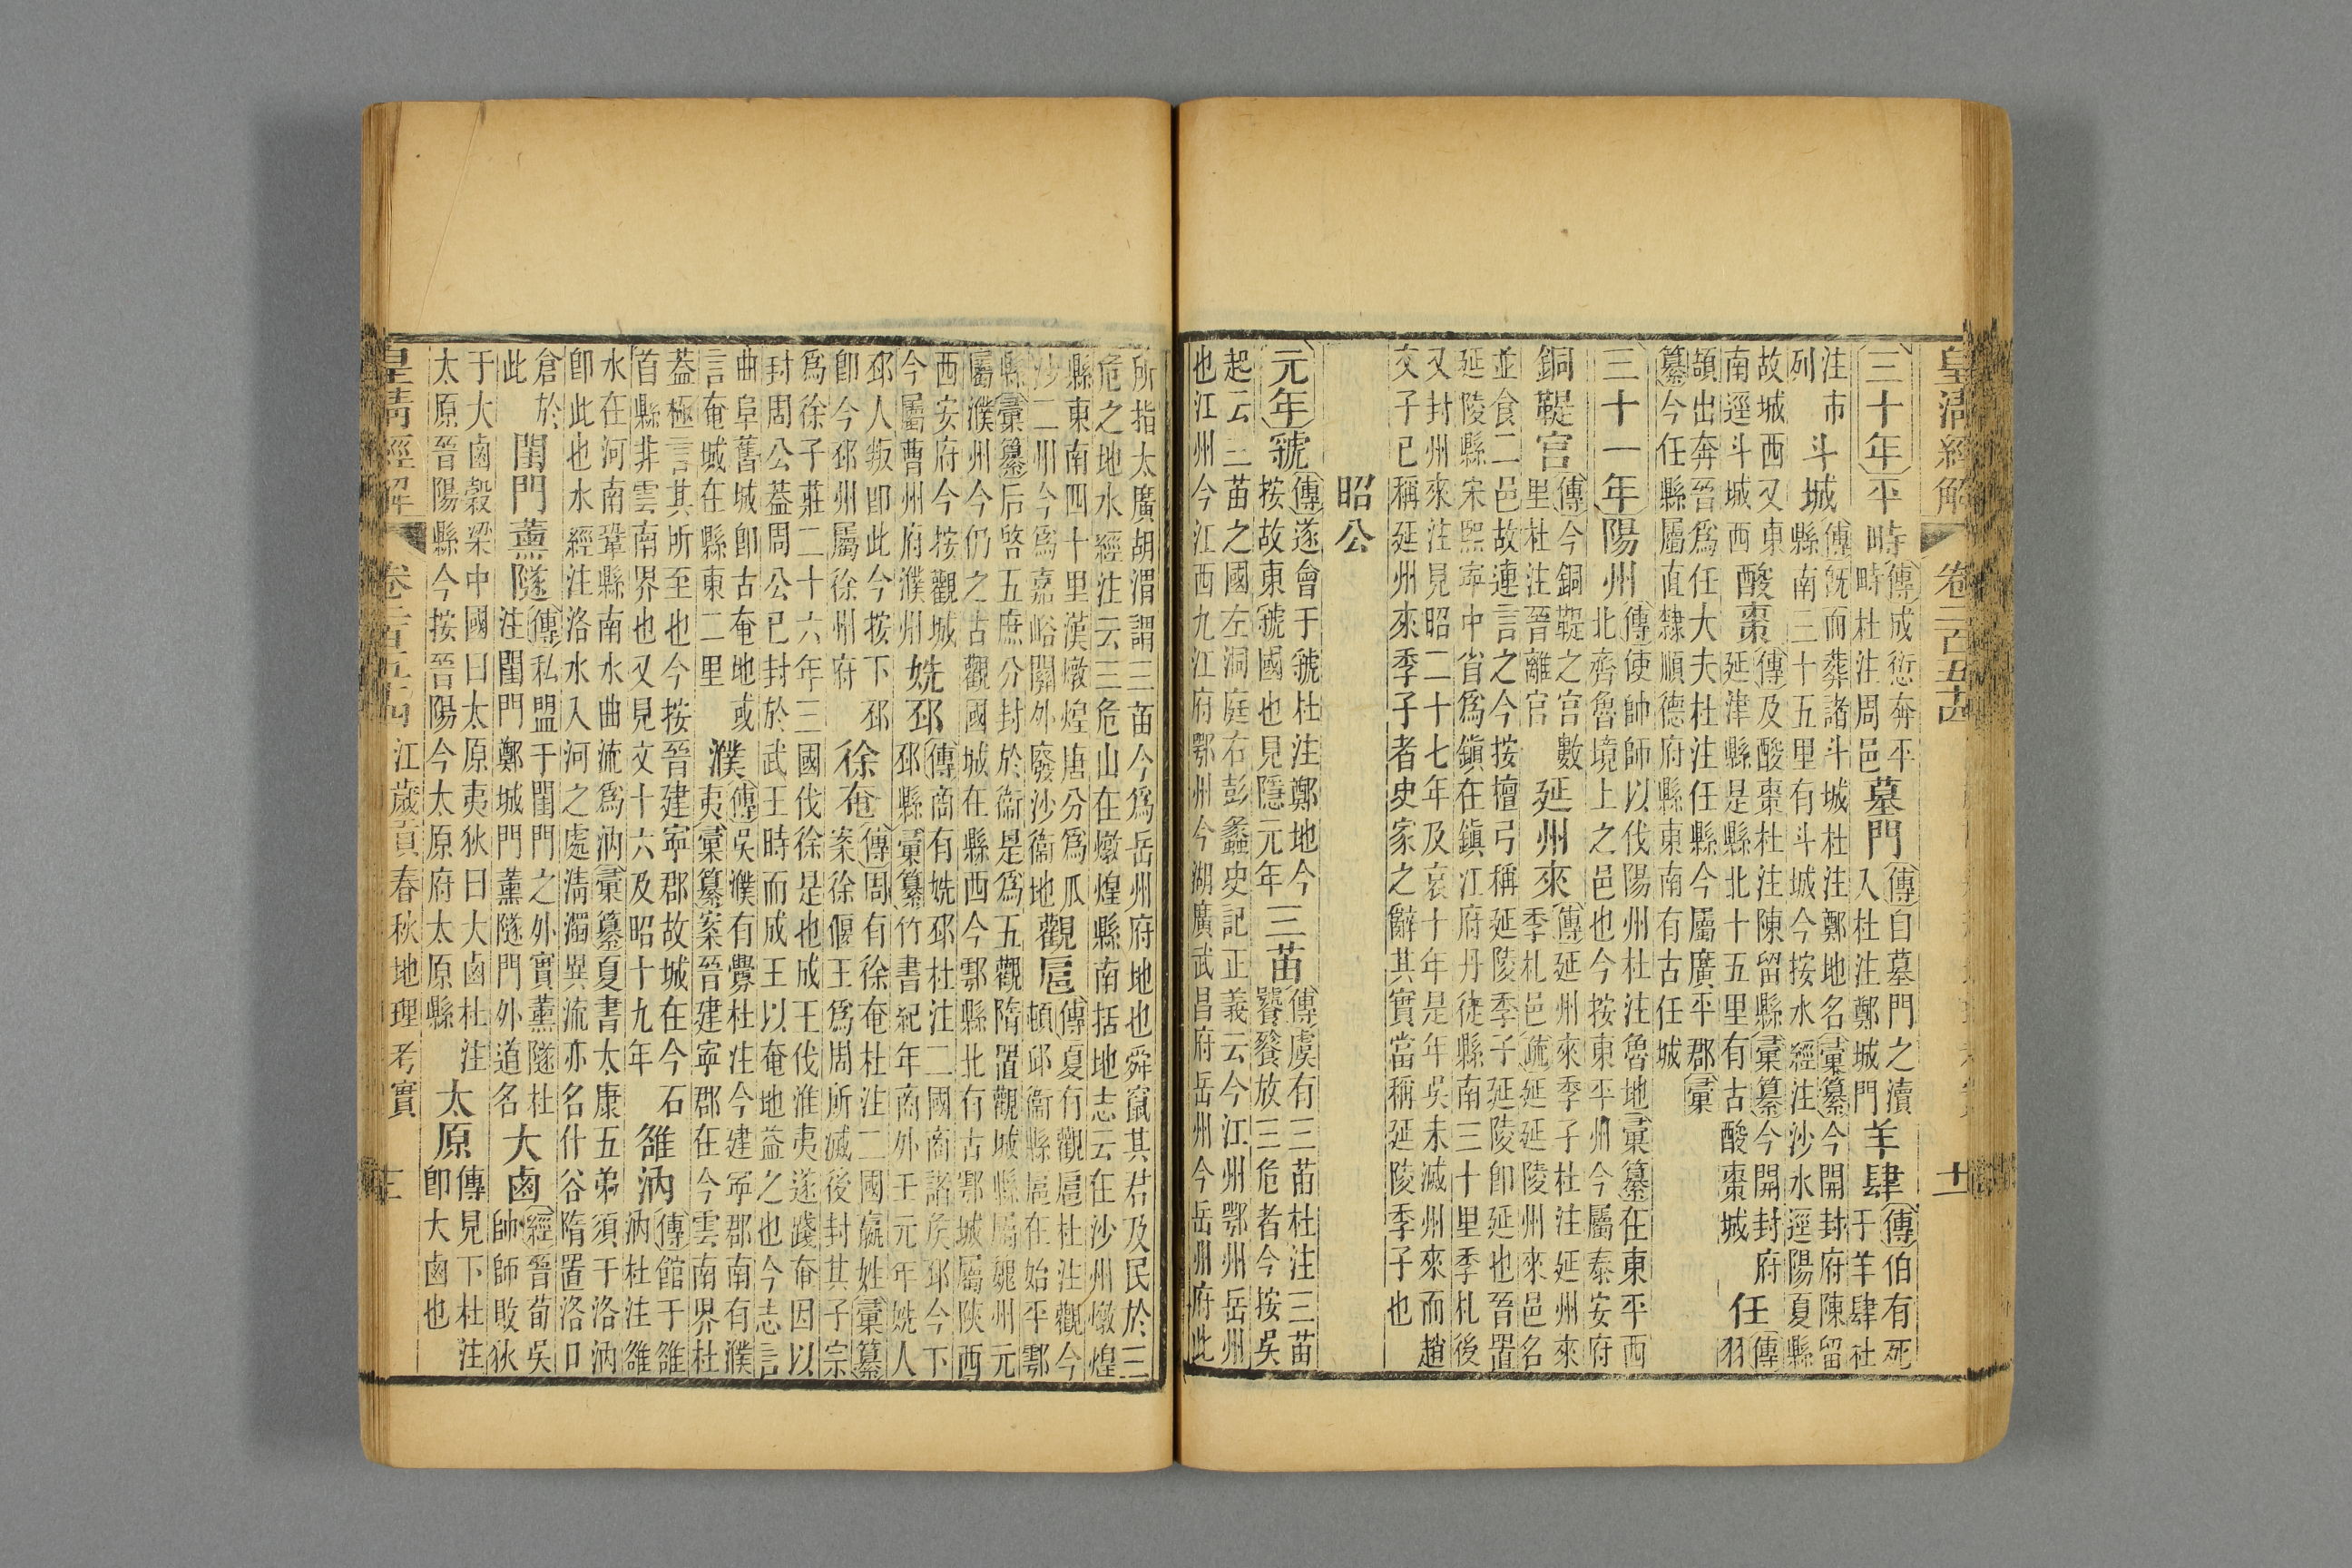 皇清經解 卷二百五十四 十二
三十年 平畤
傳成愆奔平
畤杜注周邑
墓門
傳自墓門之瀆
入杜注鄭城門
羊肆
傳伯有死
于羊肆杜
注市
列
斗城
傳既而葬諸斗城杜注鄭地名彚纂今開封府陳留
縣南三十五里有斗城今按水經注沙水逕陽夏縣
故城西又東
南逕斗城西
酸棗
傳及酸棗杜注陳留縣彚纂今開封府
延津縣是縣北十五里有古酸棗城
任
傳
羽
頡出奔晉爲任大夫杜注任縣今屬廣平郡彚
纂今任縣屬直隸順德府縣東南有古任城
三十一年 陽州
傳使帥師以伐陽州杜注魯地彚纂在東平西
北齊魯境上之邑也今按東平州今屬泰安府
銅鞮宮
傳今銅鞮之宮數
里杜注晉離官
延州來
傳延州來季子杜注延州來
季札邑疏延延陵州來邑名
並食二邑故連言之今按檀弓稱延陵季子延陵卽延也晉置
延陵縣宋熙寧中省爲鎭在鎭江府丹徒縣南三十里季札後
又封州來注見昭二十七年及哀十年是年吳未滅州來而趙
文子已稱延州來季子者史家之辭其實當稱延陵季子也
昭公
元年 虢
傳遂會于虢杜注鄭地今
按故東虢國也見隱元年
三苗
傳虞有三苗杜注三苗
饕餮放三危者今按吳
起云三苗之國左洞庭右彭蠡史記正義云今江州鄂州岳州
也江州今江西九江府鄂州今湖廣武昌府岳州今岳州府此
所指太廣胡渭謂三苗今爲岳州府地也舜竄其君及民於三
危之地水經注云三危山在燉煌縣南括地志云在沙州燉煌
縣東南四十里漢燉煌唐分爲瓜
沙二州今爲嘉峪關外廢沙衞地
觀扈
傳夏有觀扈杜注觀今
頓邱衞縣扈在始平鄠
縣彚纂后啓五庶分封於衞是爲五觀隋置觀城縣屬魏州元
屬濮州今仍之古觀國城在縣西今鄠縣北有古鄠城屬陝西
西安府今按觀城
今屬曹州府濮州
姺邳
傳商有姺邳杜注二國商諸侯邳今下
邳縣彚纂竹書紀年商外壬元年姺人
邳人叛卽此今按下邳
卽今邳州屬徐州府
徐奄
傳周有徐奄杜注二國嬴姓彚纂
案徐偃王爲周所滅後封其子宗
爲徐子莊二十六年三國伐徐是也成王伐淮夷遂踐奄因以
封周公葢周公已封於武王時而成王以奄地益之也今志言
曲阜舊城卽古奄地或
言奄城在縣東二里
濮
傳吳濮有釁杜注今建寧郡南有濮
夷彚纂案晉建寧郡在今雲南界杜
葢極言其所至也今按晉建寧郡故城在今石
首縣非雲南界也又見文十六及昭十九年
雒汭
傳館于雒
汭杜注雒
水在河南鞏縣南水曲流爲汭彚纂夏書太康五弟須于洛汭
卽此也水經注洛水入河之處淸濁異流亦名什谷隋置洛口
倉於
此
閨門薰隧
傳私盟于閨門之外實薰隧杜
注閨門鄭城門薰隧門外道名
大鹵
經晉荀吳
帥師敗狄
于大鹵穀梁中國曰太原夷狄曰大鹵杜注
太原晉陽縣今按晉陽今太原府太原縣
太原
傳見下杜注
卽大鹵也
皇清經解 卷二百五十四 江歲貢春秋地理考實 十三